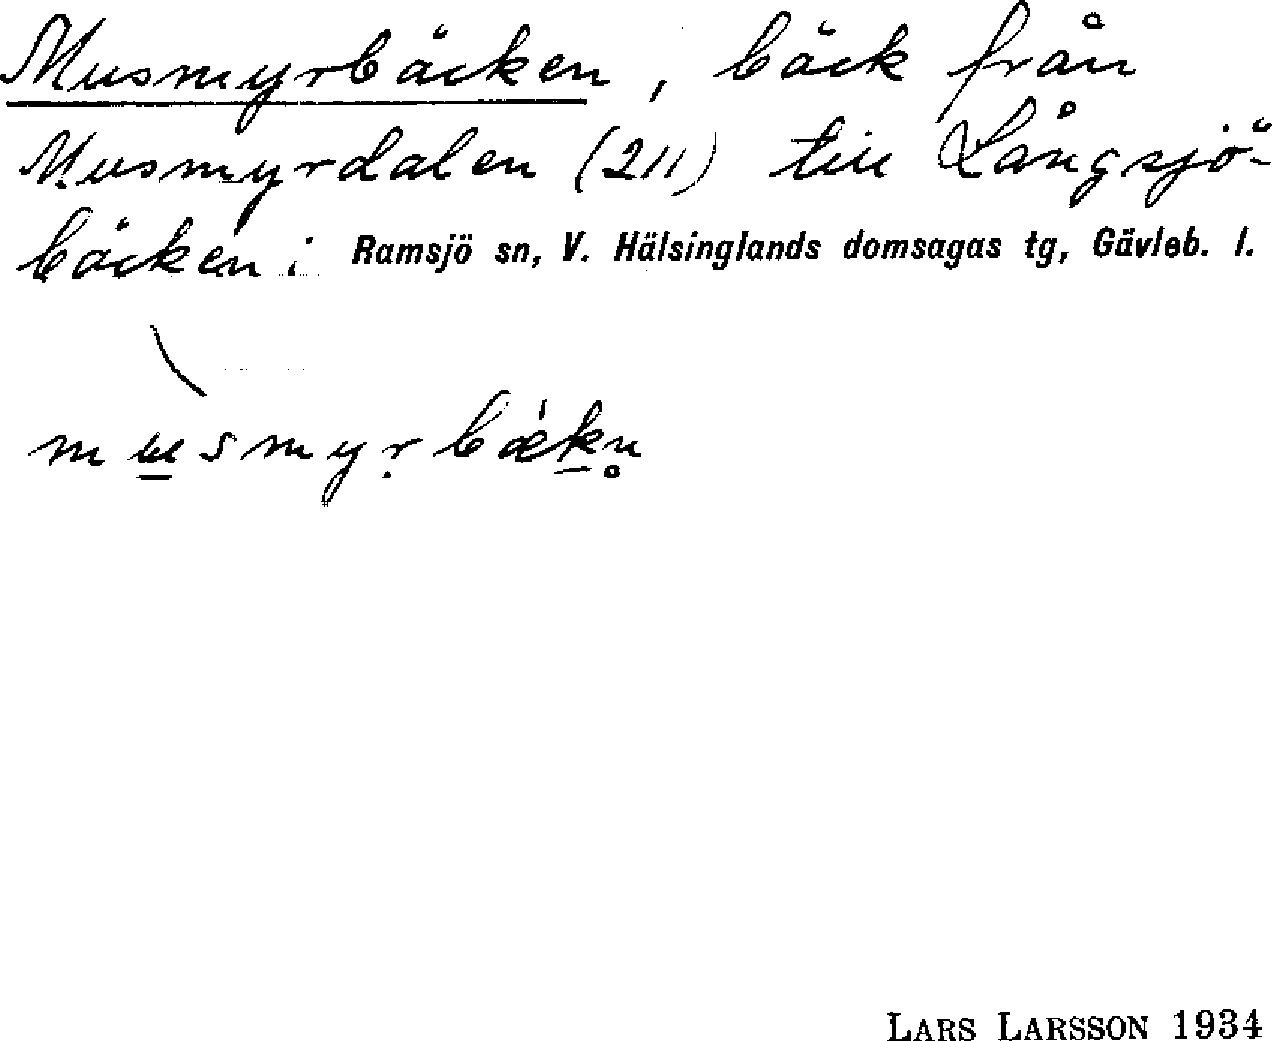 Musmyrbäcken, bäck från
Musmyrdalen (211) till Långsjö-
bäcken i Ramsjö sn, V. Hälsinglands domsagas tg, Gävleb. l.
LARS LARSSON 1934